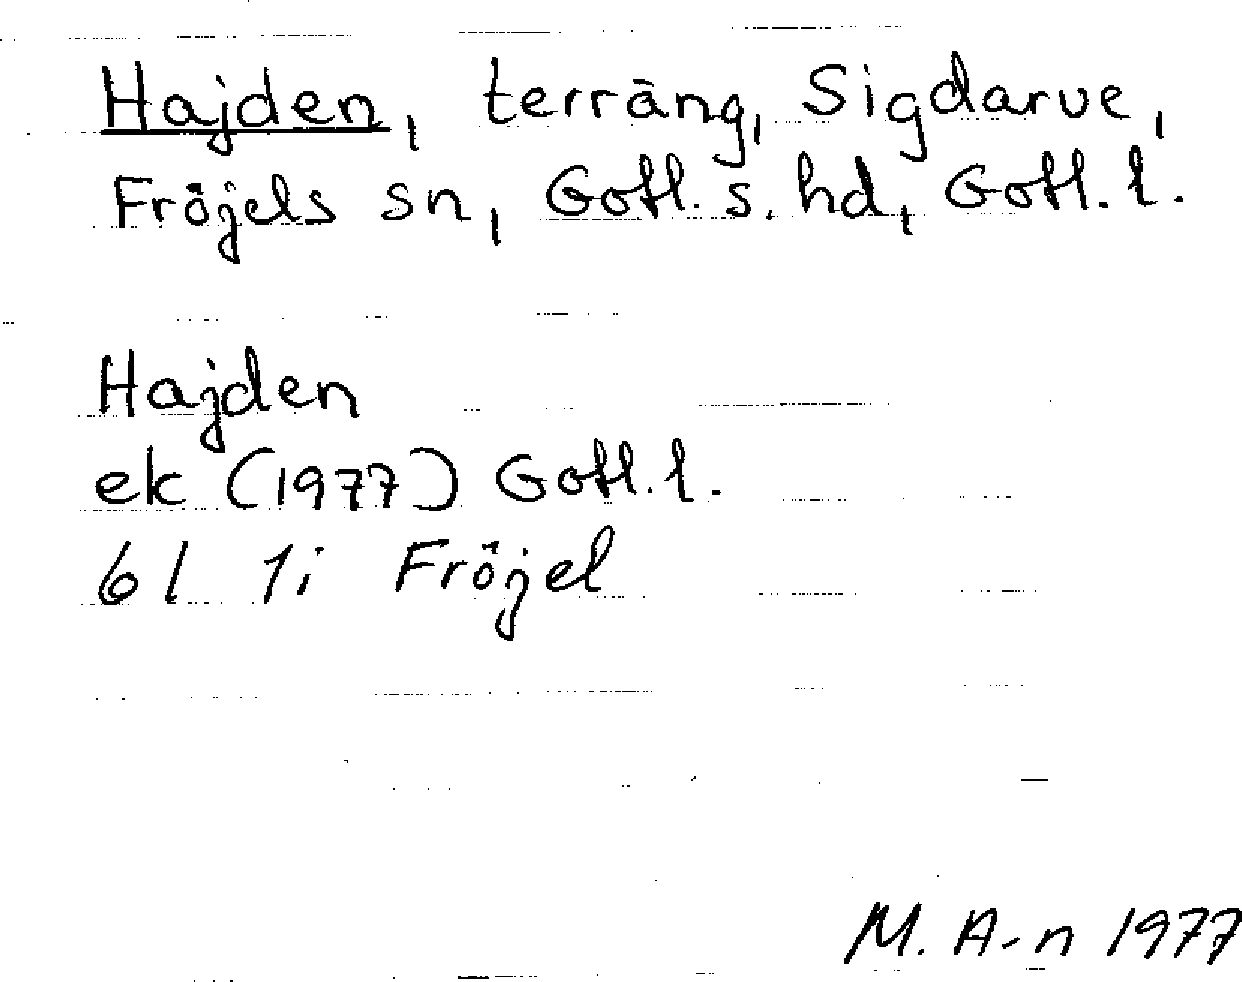 Hajden, terräng, Sigdarve,
Fröjels sn, Gotl. s. hd, Gotl. l.
Hajden
ek (1977) Gotl. l.
6 I 1i Fröjel
M. A-n 1977